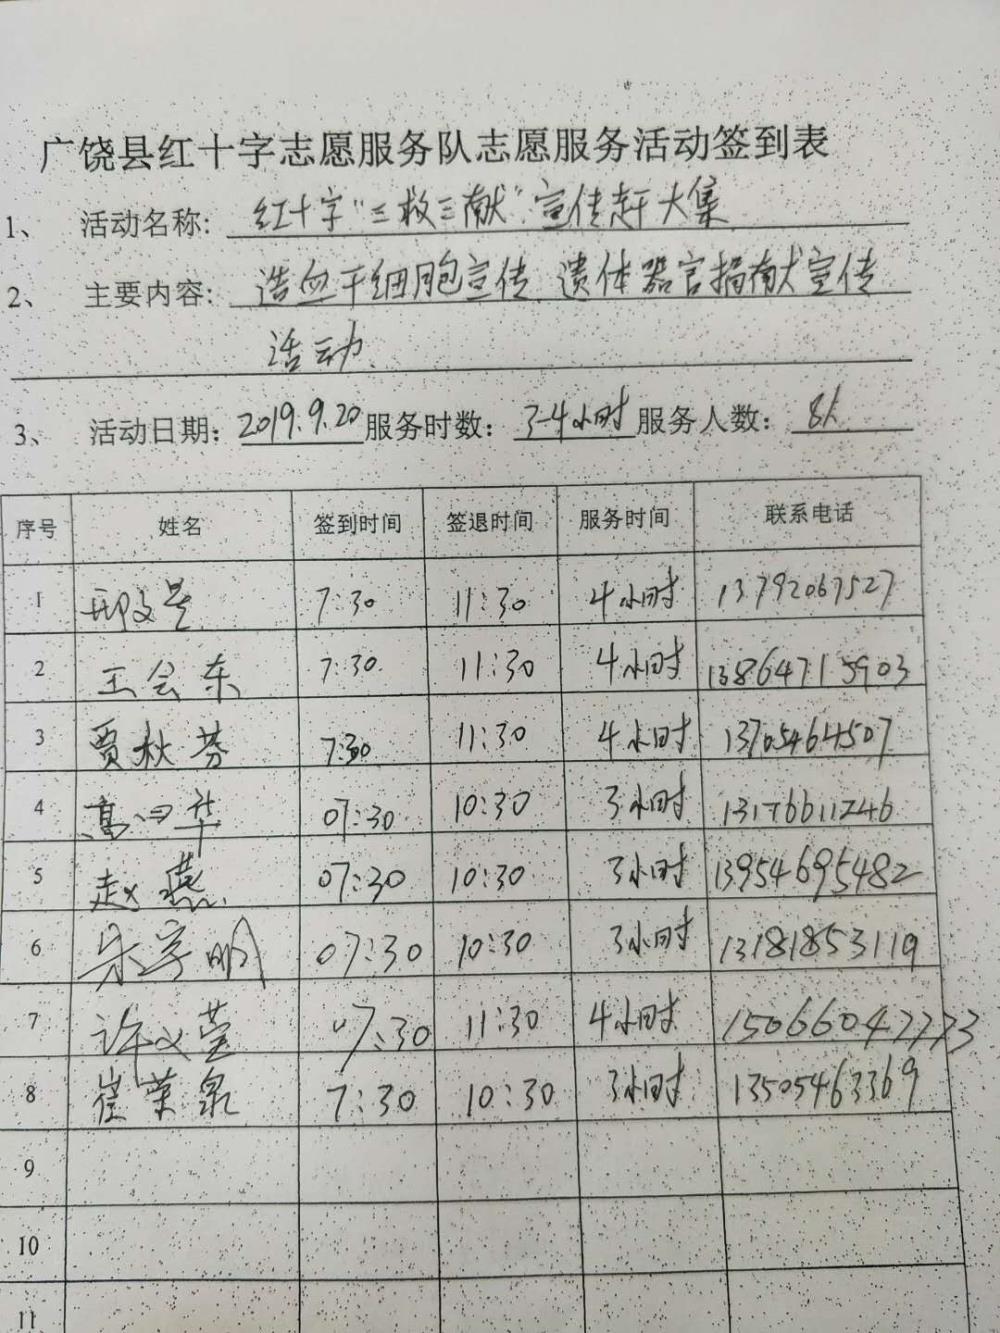 广饶县红十字志愿服务队志愿服务活动签到表
1、 活动名称: 红十字"三救三献"宣传赶大集
2、 主要内容: 造血干细胞宣传、遗体器官捐献宣传
活动.
3、 活动日期: 2019.9.20 服务时数: 3-4小时 服务人数: 8人
序号 姓名 签到时间 签退时间 服务时间 联系电话
1 7:30 11:30 4小时 13792067527
2 王会东 7:30 11:30 4小时 13864715903
3 贾秋芬 7:30 11:30 4小时 13705464507
4 07:30 10:30 3小时 13176611246
5 赵燕 07:30 10:30 3小时 13954695482
6 07:30 10:30 3小时 13181853119
7 许义莹 07:30 11:30 4小时
8 崔荣泉 7:30 10:30 3小时 13505463369
9
10
11